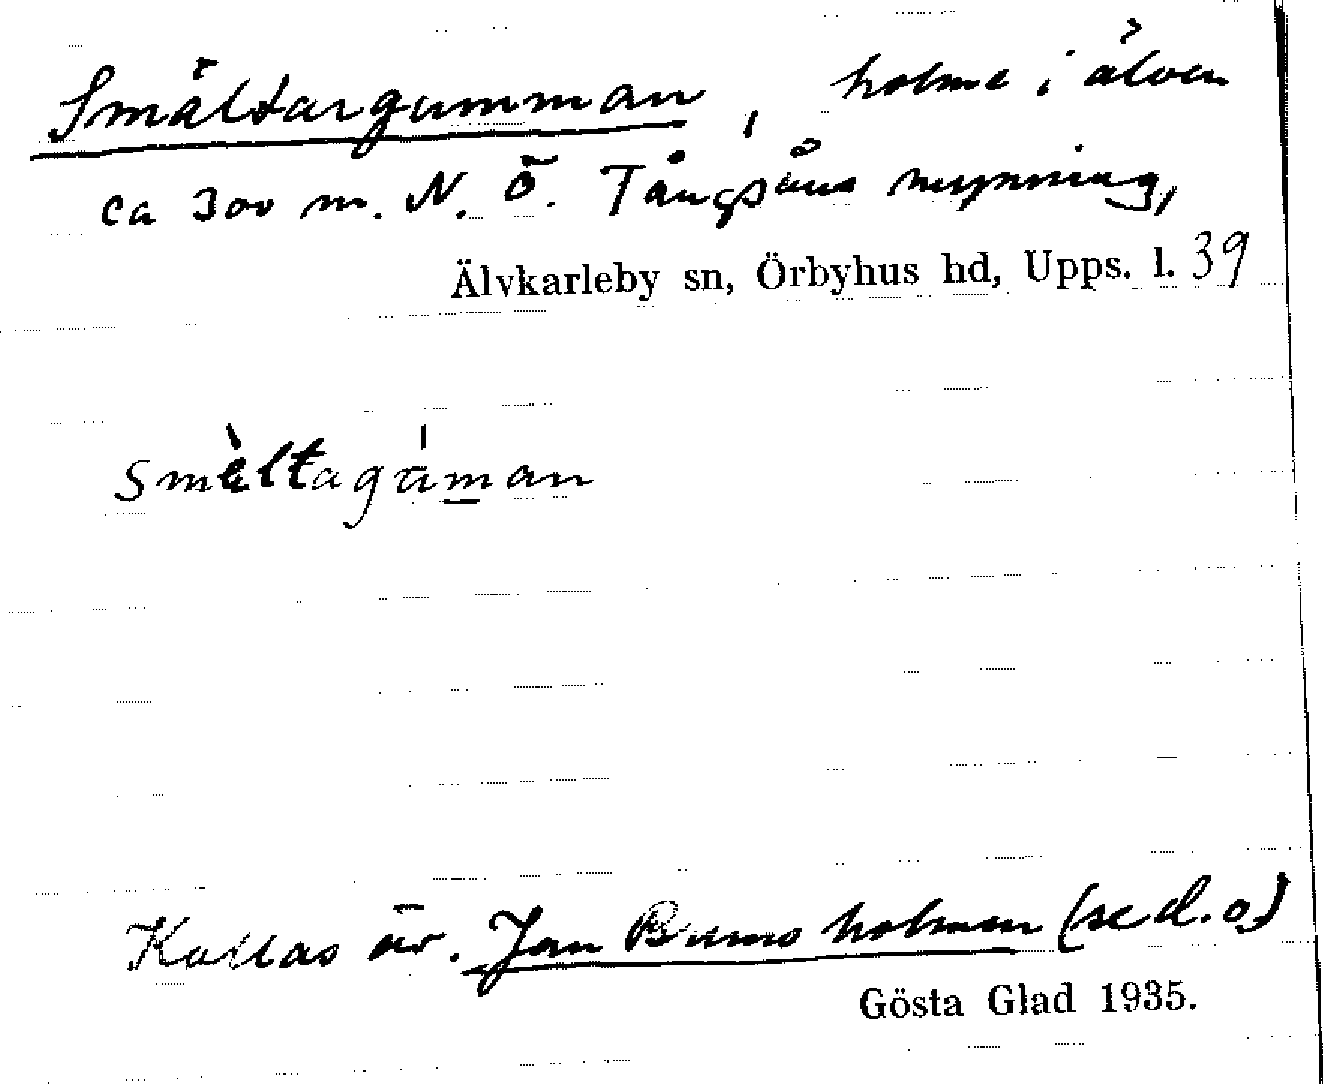 Smältargumman, holme i älven
ca 300 m. N. Ö. Tångsåns mynning,
Älvkarleby sn, Örbyhus hd, Upps. l. 39
smèltagúman
Kallas äv. Jan Bums holmen (se d. o.)
Gösta Glad 1935.